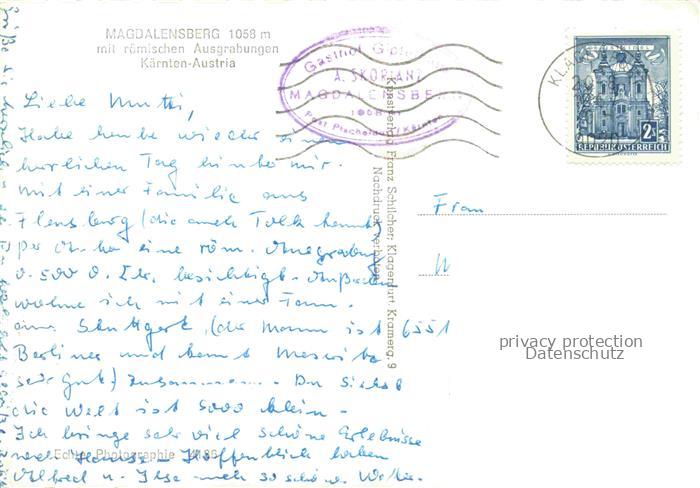 MAGDALENSBERG 1058 m
mit römischen Ausgrabungen
Kärnten-Austria
Gasthof
A. SKORIANZ
MAGDALENSBERG
Post Pischeldorf, Kärnten
KLAG
2S
REPUBLIK ÖSTERREICH
Liebe Mutti,
Habe heute wieder einen
herrlichen Tag hinter mir.
Mit einer Familie aus
Flensburg (die auch Tolk kennt)
per eine röm. Ausgrabung
v. 500 v. Chr. besichtigt. Außerdem
wohne ich mit einer Fam.
aus Stuttgart, (der Mann ist
Berliner und kennt
sehr gut) zusammen. Du siehst
die Welt ist sooo klein -
Ich bringe sehr viel schöne Erlebnisse
nach Hause - Hoffentlich haben
u. Ilse auch so schön. Wetter.
Frau
6551
Kunstverlag Franz Schilcher, Klagenfurt, Kramerg. 9
Nachdruck verboten
Echte Photographie
privacy protection
Datenschutz